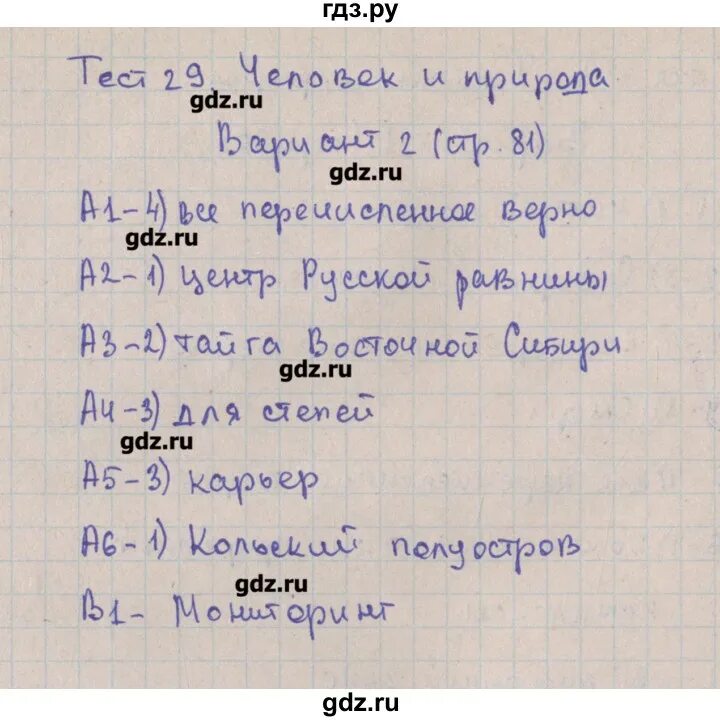 гдз.ру
Тест 29 Человек и природа
gdz.ru
Вариант 2 (стр. 81)
gdz.ru
А1-4) все перечисленное верно
gdz.ru
А2-1) центр Русской равнины
А3-2) тайга Восточной Сибири
gdz.ru
А4-3) для степей
gdz.ru
А5-3) карьер
А6-1) Кольский полуостров
gdz.ru
В1- Мониторинг
gdz.ru